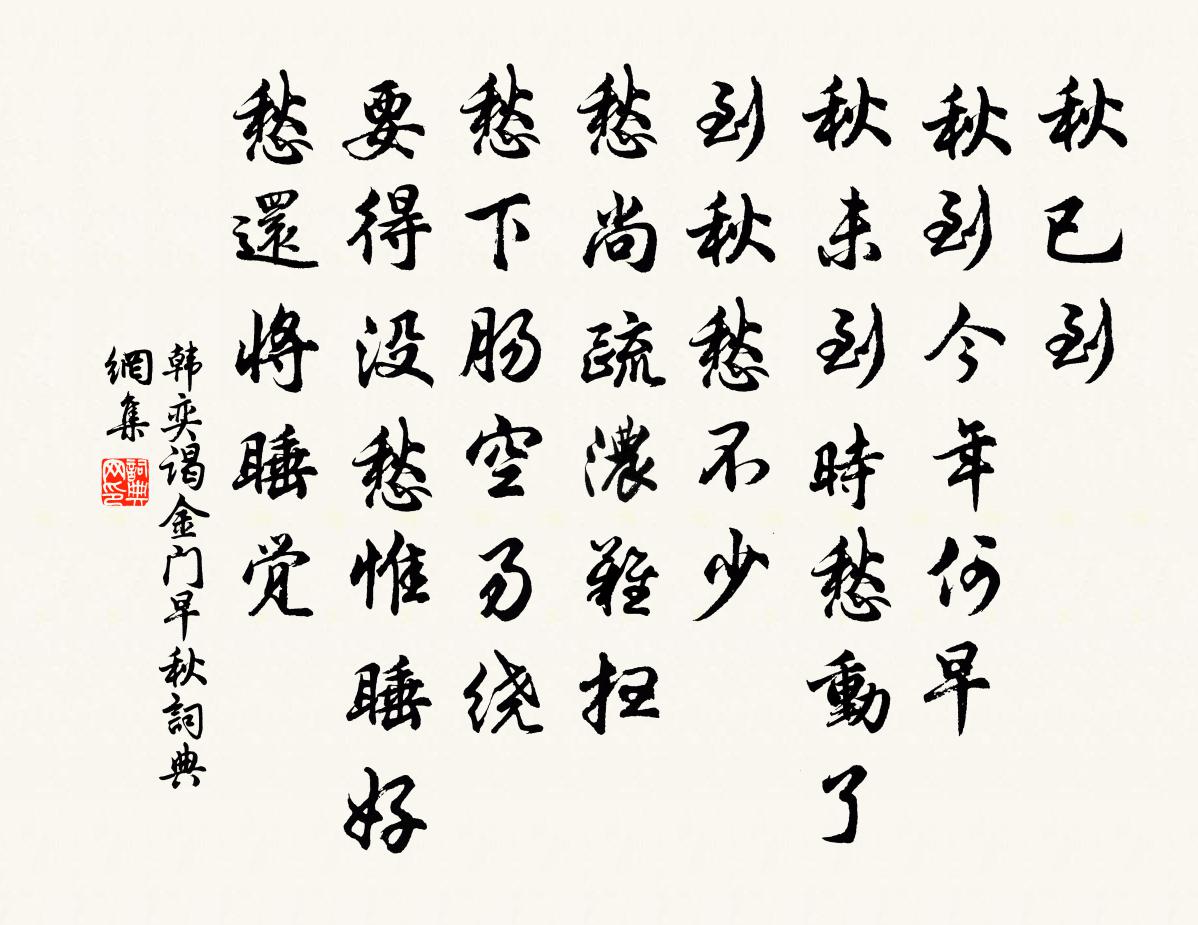 秋已到
秋到今年何早
秋未到時愁動了
到秋愁不少
愁尚疏濃難扭
愁下肠空易绕
要得没愁惟睡好
愁還將睡觉
韩奕谒金门早秋詞典
網集
詞典
网印